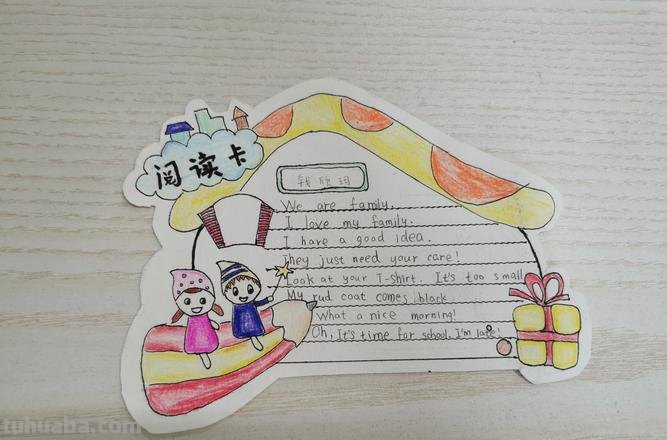 阅读卡
钱欣
We are family.
I love my family.
I have a good idea.
They just need your care!
Look at your T-Shirt. It's too small
My rud coat comes black
What a nice morning!
Oh, It's time for school, I'm late!
tuhuaba.com